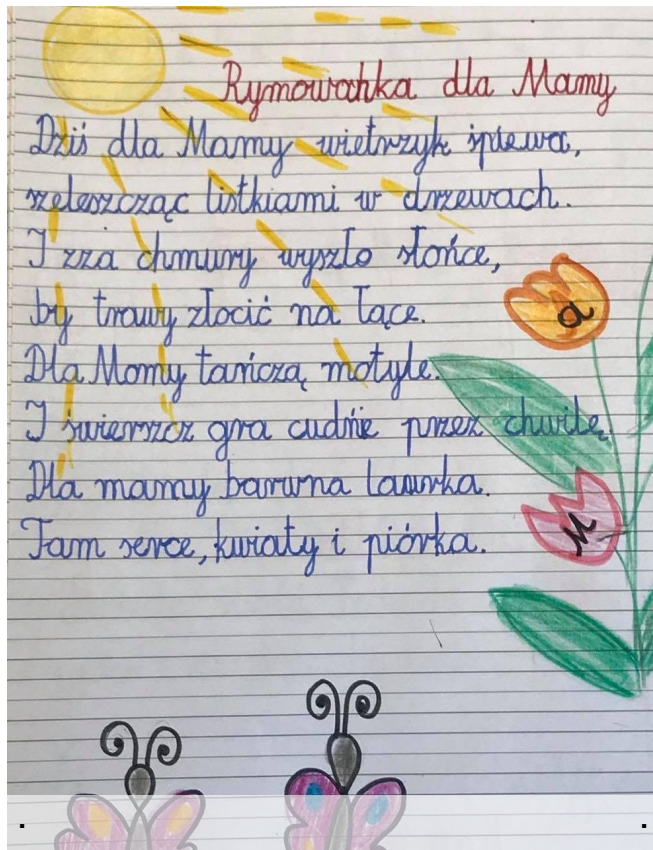 Rymowanka dla Mamy
Dziś dla Mamy wietrzyk śpiewa,
szeleszcząc listkami w drzewach.
I zza chmury wyszło słońce,
by trawy złocić na łące.
Dla Mamy tańczą motyle.
I świerszcz gra cudnie przez chwilę.
Dla mamy barwna laurka.
Tam serce, kwiaty i piórka.
a
M